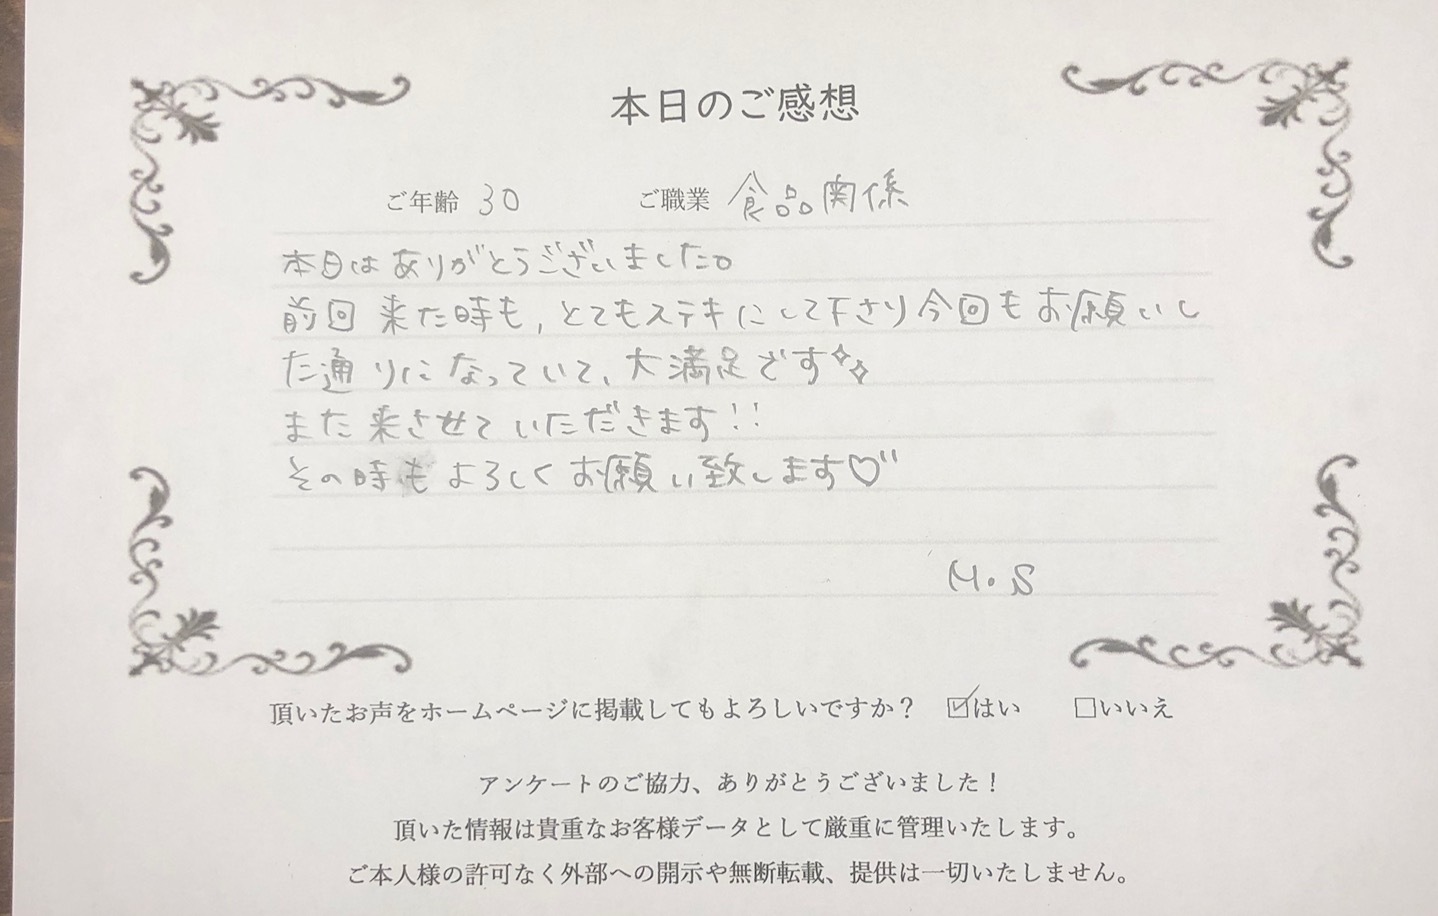 本日のご感想
ご年齢 30 ご職業 食品関係
本日はありがとうございました。
前回来た時も、とてもステキにして下さり今回もお願いし
た通りになっていて、大満足です✨
また来させていただきます!!
その時もよろしくお願い致します♡"
M.S
頂いたお声をホームページに掲載してもよろしいですか？ ☑はい □いいえ
アンケートのご協力、ありがとうございました！
頂いた情報は貴重なお客様データとして厳重に管理いたします。
ご本人様の許可なく外部への開示や無断転載、提供は一切いたしません。